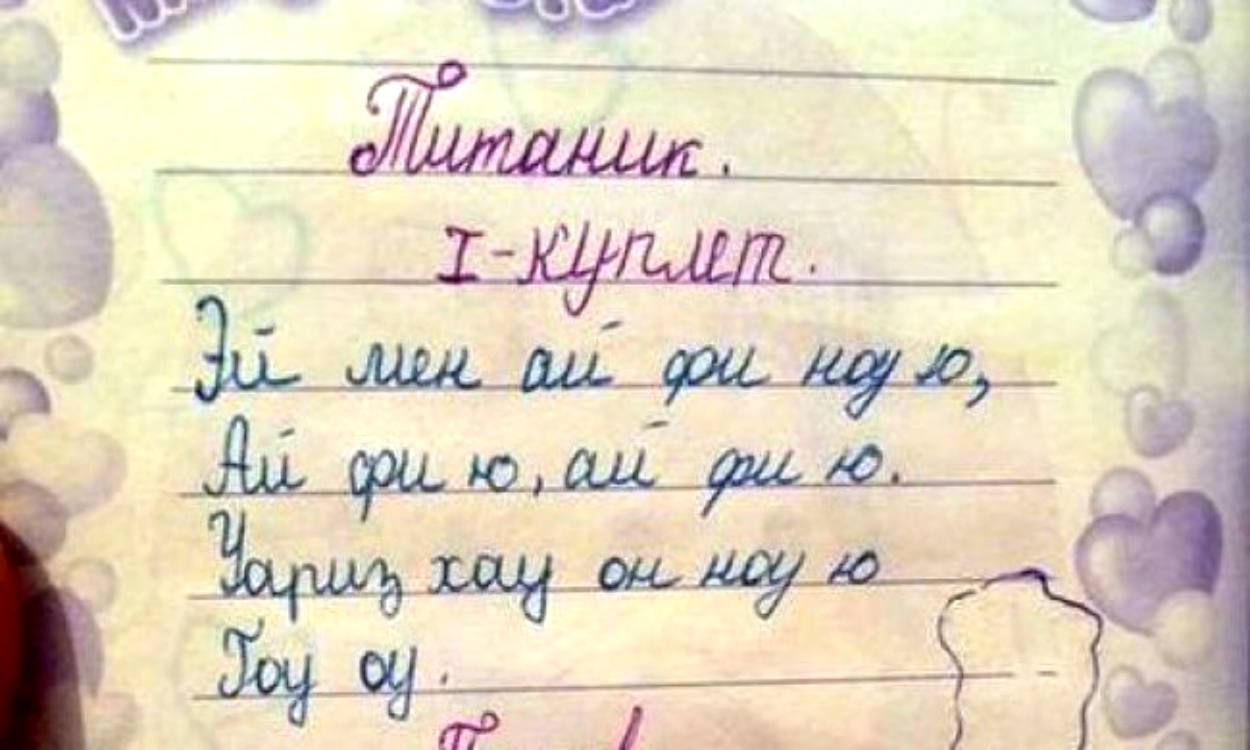 Титаник.
I-куплет.
Эй мен ай фи ноу ю,
Ай фи ю, ай фи ю.
Уариз хау он ноу ю
Гоу оу.